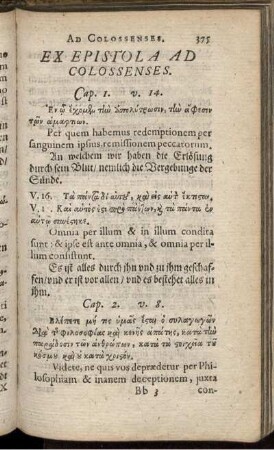 AD COLOSSENSES. 375
EX EPISTOLA AD
COLOSSENSES.
Cap. 1. v. 14.
Ἐν ᾧ ἔχομεν τὴν ἀπολύτρωσιν, τὴν ἄφεσιν
τῶν ἁμαρτιῶν.
Per quem habemus redemptionem per
sanguinem ipsius, remissionem peccatorum.
An welchem wir haben die Erlösung
durch sein Blut / nemlich die Vergebunge der
Sünde.
V. 16. Τὰ πάντα δι' αὐτοῦ, καὶ εἰς αὐτὸν ἔκτισται,
V. Καὶ αὐτός ἐστι πρὸ πάντων, καὶ τὰ πάντα ἐν
αὐτῷ συνέστηκε.
Omnia per illum & in illum condita
sunt: & ipse est ante omnia, & omnia per il-
lum consistunt.
Es ist alles durch ihn vnd zu ihm geschaf-
fen / vnd er ist vor allen / vnd es bestehet alles in
ihm.
Cap. 2. v. 8.
Βλέπετε μή τις ὑμᾶς ἔσται ὁ συλαγωγῶν
διὰ τῆς φιλοσοφίας καὶ κενῆς ἀπάτης, κατὰ τὴν
παράδοσιν τῶν ἀνθρώπων, κατὰ τὰ στοιχεῖα τοῦ
κόσμου καὶ οὐ κατὰ χριστόν.
Videte, ne quis vos deprædetur per Phi-
losophiam & inanem deceptionem, juxta
Bb 3 con-